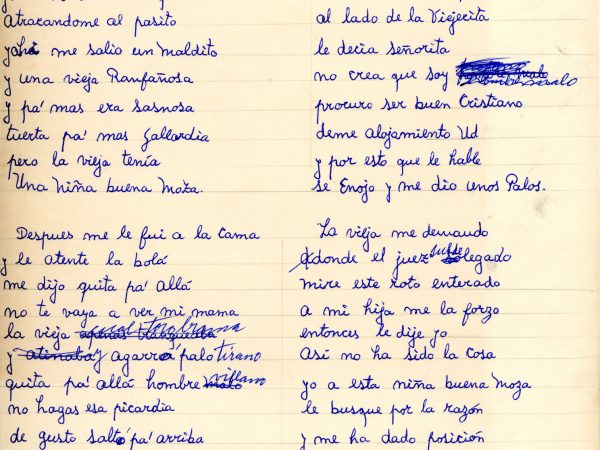 Atracandome al pasito
y ahi me salio un maldito
y una vieja Ranfañosa
y pa' mas era sasnosa
tuerta pa' mas Gallardia
pero la vieja tenía
Una Niña buena Moza.
Despues me le fui a la Cama
y le atente la bolá
me dijo quita pa' allá
no te vaya a ver mi mama
la vieja cual
y agarró palo tirano
quita pa' allá hombre villano
no hagas esa picardia
de gusto saltó pa' arriba
al lado de la Viejecita
le decia señorita
no crea que soy
procuro ser buen Cristiano
deme alojamiento Ud
y por esto que le hable
se Enojo y me dio unos Palos.
La vieja me demando
donde el juez subdelegado
mire este roto enterado
a mi hija me la forzo
entonces le dije yo
Así no ha sido la Cosa
yo a esta niña buena Moza
le busque por la razón
y me ha dado posición